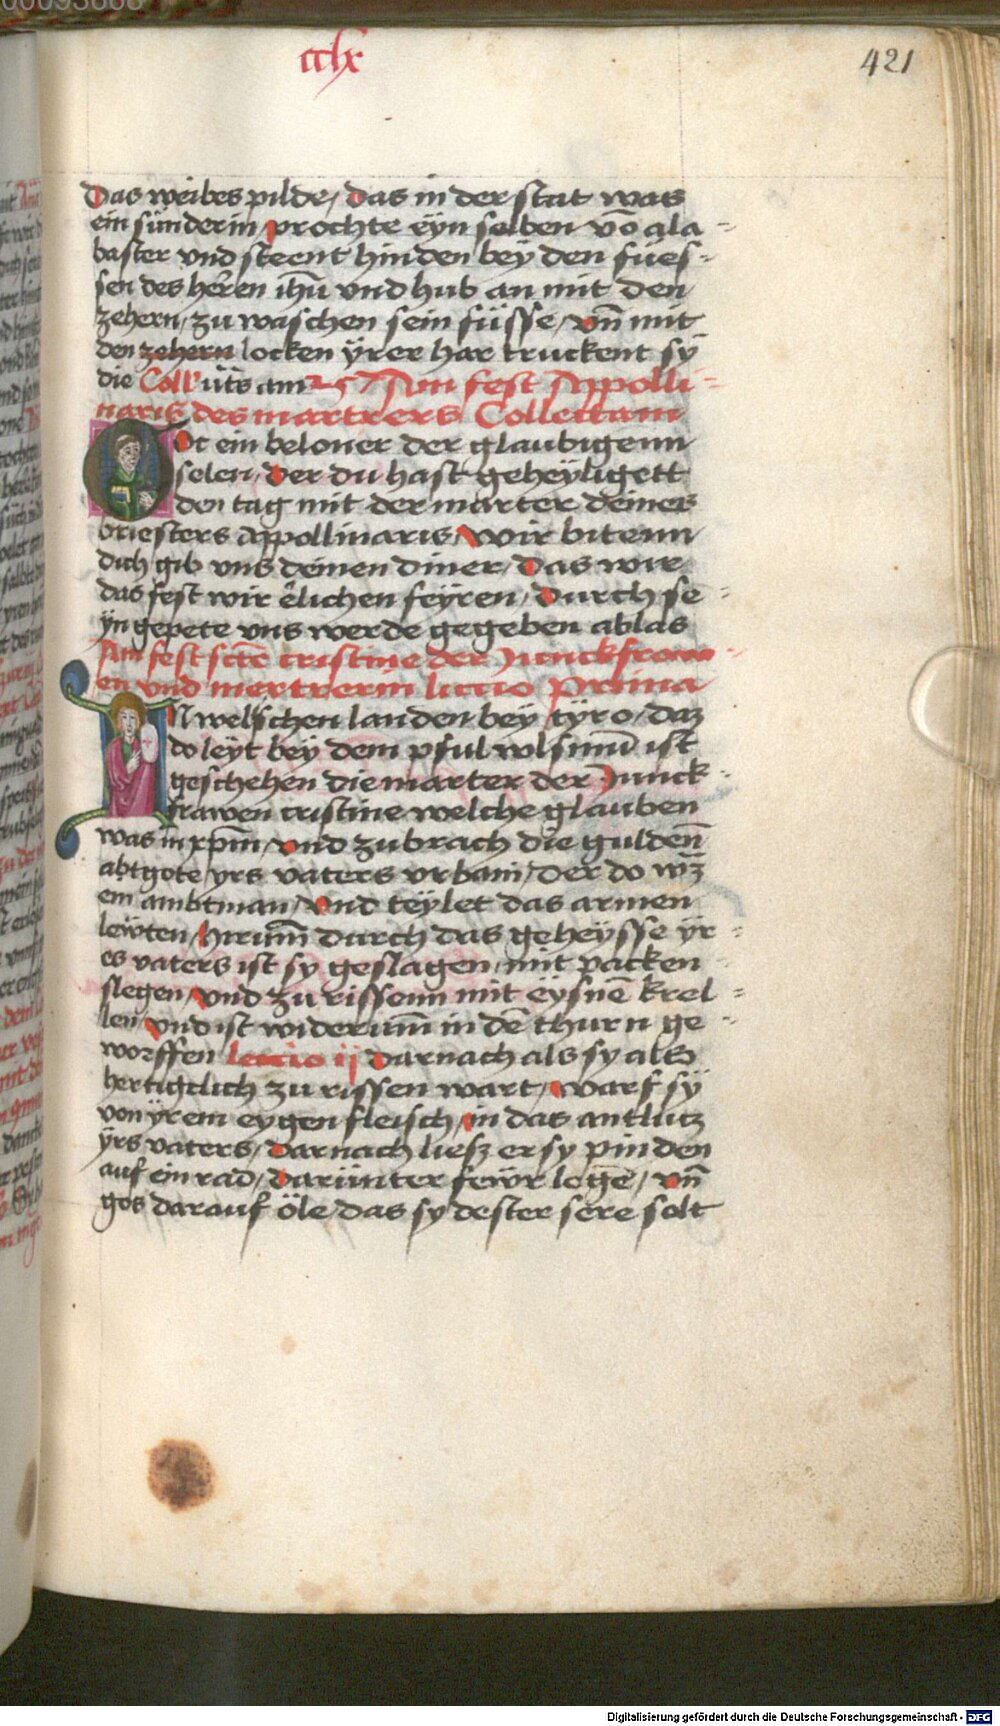 cclx
421
Das weibes pilde, das in der stat was
ein sünderin prochte eÿn salben vō ala=
baster und steent hinden beÿ den fües=
sen des herren ihū und hub an mit den
zehern, zu waschen sein füsse, vn̄ mit
den zehern locken ÿrer har truckent sÿ
die Coll' ut̄s am Am fest Appolli=
naris des martrers Collectam
Ot ein beloner der glaubigenn
selen, der du hast geheÿligett
den tag mit der marter deines
briesters Appollinaris, wir bitenn
dich gib uns deinen diner, das wir
das fest wir elichen feÿren, durch se=
ÿn gepete uns werde gegeben ablas
Am fest scte cristine der Junckfraw=
en und mertrerin lectio Prima
IN welschen landen beÿ tÿro, daz
do leÿt beÿ dem pful wlsinū ist
geschehen die marter der Junck=
frawen cristine welche glauben
was in xp̄m, vnd zubrach die gulden̄
abtgote yrs vaters vrbani, der do wz
ein ambtman, vnd teÿlet das armen
lewten, hirum̄ durch das geheÿsse ÿr=
es vaters ist sy geslagen, mit packen
slegen, vnd zu rissenn mit eÿsnē krel=
len, vnd ist widerum̄ in dē thurn ge=
worffen lectio ij Darnach als sy also
hertigclich zu rissen wart, warf sÿ
von ÿrem eygen fleisch, in das antlutz
ÿrs vaters, darnach liesz er sy pinden
auf ein rad, darünter fewr legē, vn̄
gos darauf öle, das sy dester sere solt
Digitalisierung gefördert durch die Deutsche Forschungsgemeinschaft - DFG